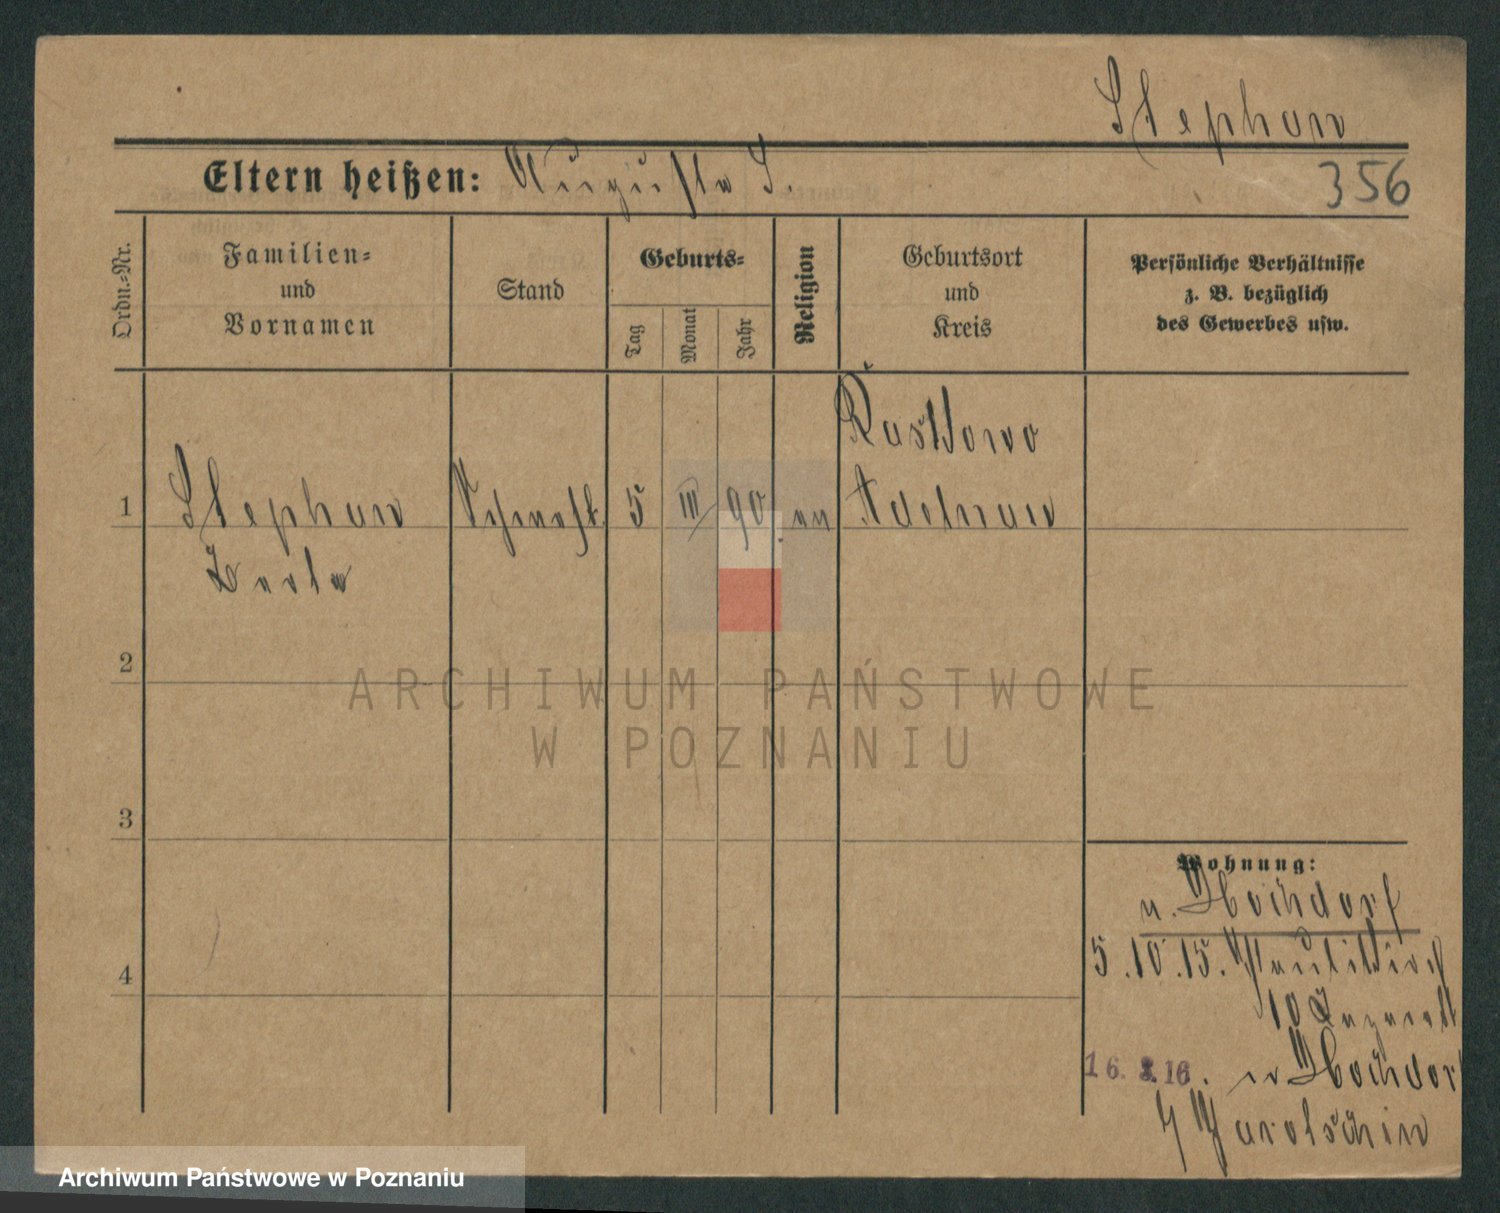 Stephan
Eltern heißen: Auguste S.
356
Ordn.-Nr.
Familien-
und
Vornamen
Stand
Geburts-
Tag
Monat
Jahr
Religion
Geburtsort
und
Kreis
Persönliche Verhältnisse
z. B. bezüglich
des Gewerbes usw.
1
Stephan
5
III
90
Adelnau
2
3
4
Wohnung:
n. Hochdorf
5.10.15.
10
16. 3. 16. n Hochdorf
Jarotschin
ARCHIWUM PAŃSTWOWE
W POZNANIU
Archiwum Państwowe w Poznaniu